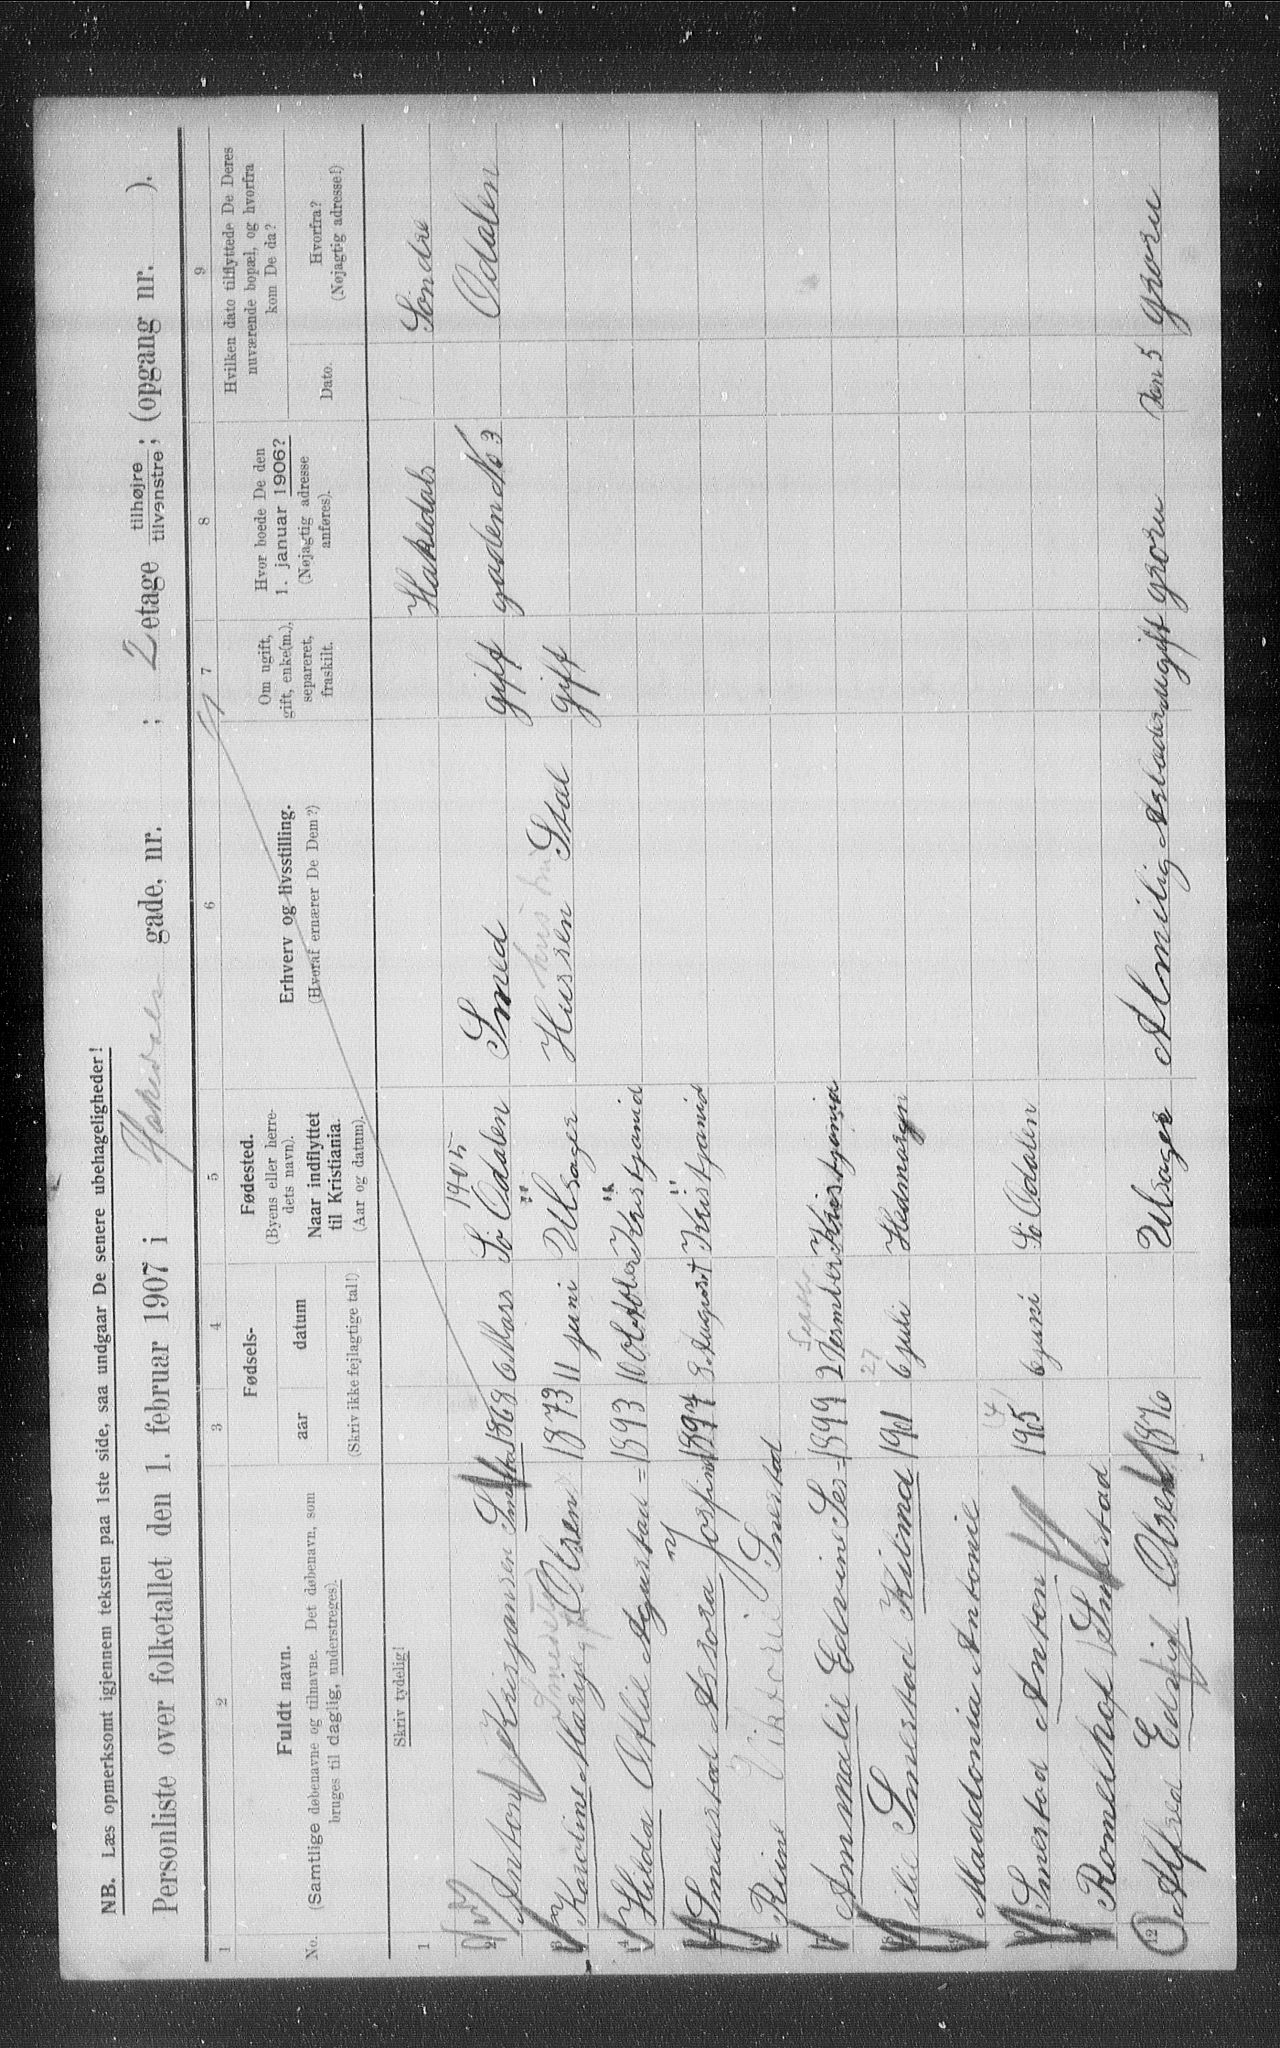 NB. Læs opmerksomt igjennem teksten paa 1ste side, saa undgaar De senere ubehageligheder!
Personliste over folketallet den 1. februar 1907 i Hakedals gade, nr. ; 2 etage tilhøjre tilvenstre; (opgang nr. ).
1 2 3 4 5 6 7 8 9
No.
Fuldt navn.
(Samtlige døbenavne og tilnavne. Det døbenavn, som
bruges til daglig, understreges).
Fødsels-
aar datum
(Skriv ikke fejlagtige tal!)
Fødested.
(Byens eller herre-
dets navn).
Naar indflyttet
til Kristiania.
(Aar og datum).
Erhverv og livsstilling.
(Hvoraf ernærer De Dem?)
Om ugift,
gift, enke(m.),
separeret,
fraskilt.
Hvor boede De den
1. januar 1906?
(Nøjagtig adresse
anføres).
Hvilken dato tilflyttede De Deres
nuværende bopæl, og hvorfra
kom De da?
Dato.
Hvorfra?
(Nøjagtig adresse!)
Skriv tydelig!
1 Hakedals Söndre
2 Anton Krisjansen 1868 6 Mars 1905 Sö Odalen Smed gift gaden No 3 Odalen
3 Karoline Olsen 1873 11 juni Ulsager Hussen Stal gift
4 Hilda Otilie 1893 10 Oktober Kristjania
Smedstad Arora Josfine 1897 3 August Kristjania
Riine Viktoria Smestad
7 Ammalie Edvine 1899 2 Kristjania
8 Smestad Hilma 1901 6 juli Hedmargen
9 Maddonia Antonie
10 Smestad Anton 1905 6 juni Sö Odalen
Smestad
12 Alfred Olsen 1876 Ulsager Almilig Arbeder ugift groru den 5 groru